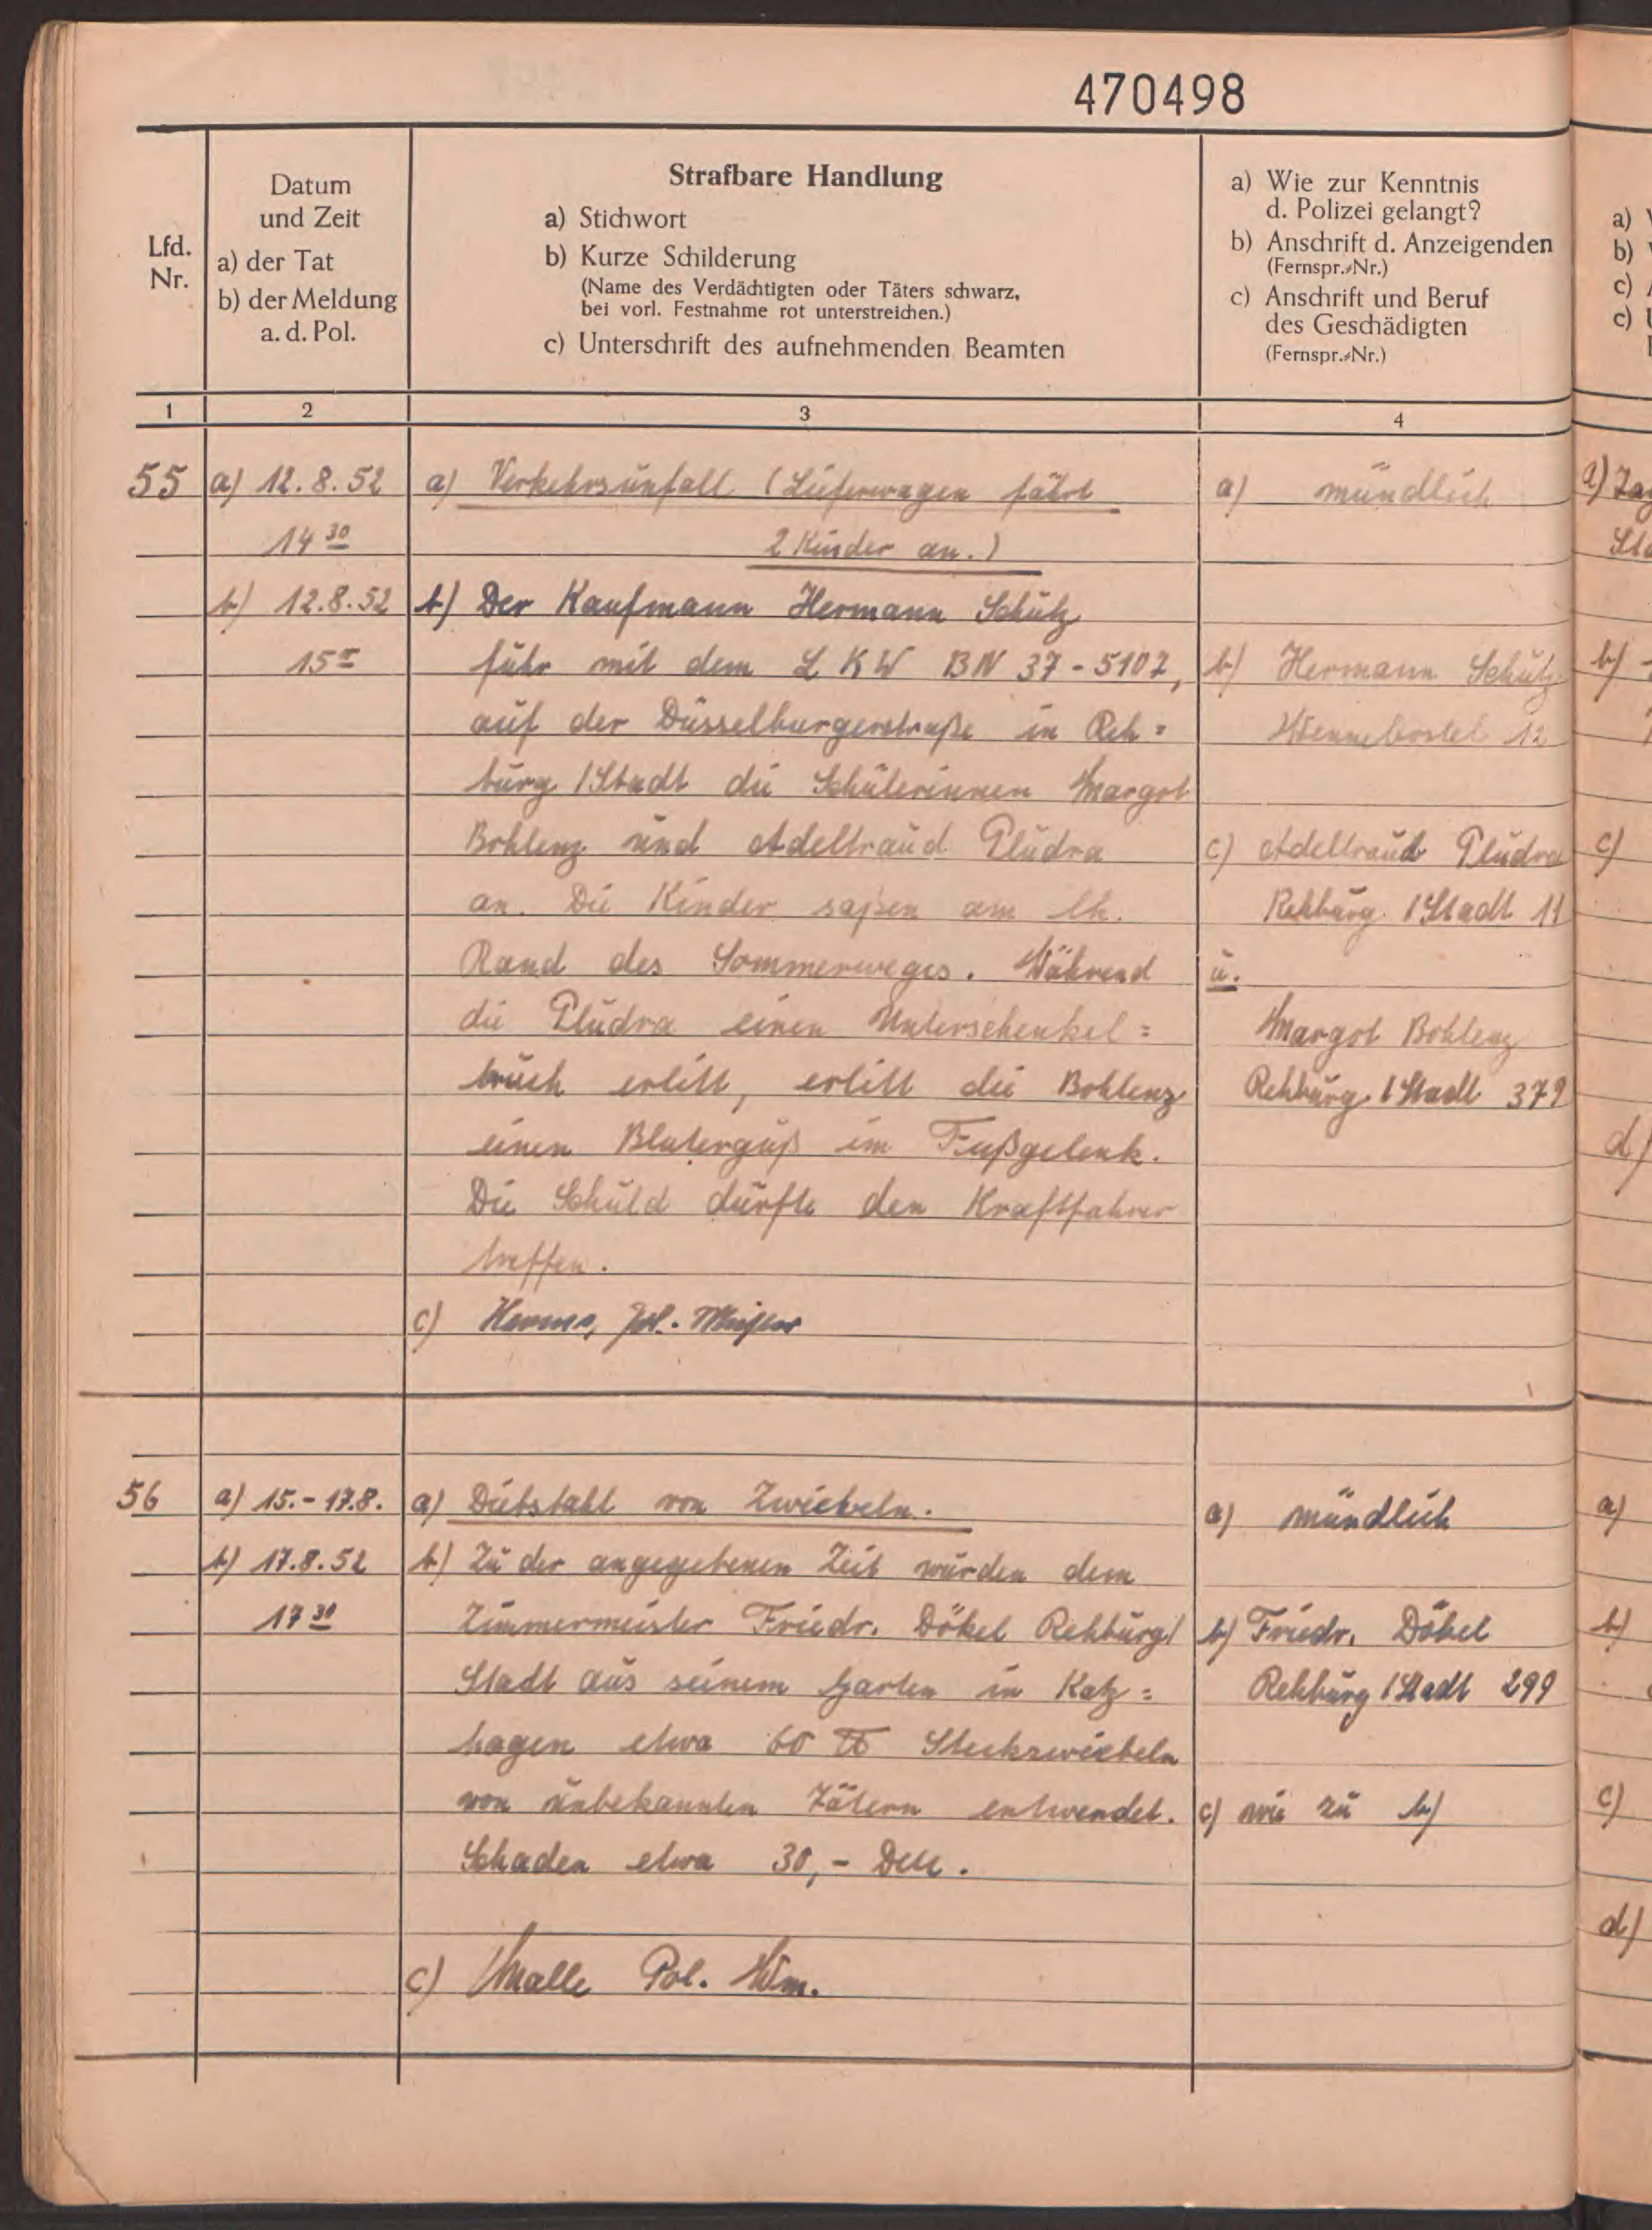 470498
Lfd. Nr.
Datum
und Zeit
a) der Tat
b) der Meldung
a. d. Pol.
Strafbare Handlung
a) Stichwort
b) Kurze Schilderung
(Name des Verdächtigten oder Täters schwarz,
bei vorl. Festnahme rot unterstreichen.)
c) Unterschrift des aufnehmenden Beamten
a) Wie zur Kenntnis
d. Polizei gelangt?
b) Anschrift d. Anzeigenden
(Fernspr.-Nr.)
c) Anschrift und Beruf
des Geschädigten
(Fernspr.-Nr.)
1 2 3 4
55
a) 12.8.52
14 30
b) 12.8.52
15
a) Verkehrsunfall (Lieferwagen fährt
2 Kinder an.)
b) Der Kaufmann Hermann Schütz
fuhr mit dem LKW BN 37-5107,
auf der Düsselburgerstraße in Reh=
burg/Stadt die Schülerinnen Margot
Bohlenz und Adeltraud Pludra
an. Die Kinder saßen am lk.
Rand des Sommerweges. Während
die Pludra einen Unterschenkel=
bruch erlitt, erlitt die Bohlenz
einen Bluterguß im Fußgelenk.
Die Schuld dürfte den Kraftfahrer
treffen.
c) Pol. Meister
a) mündlich
b) Hermann Schütz
12
c) Adeltraud Pludra
Rehburg/Stadt 11
u.
Margot Bohlenz
Rehburg/Stadt 379
56
a) 15.-17.8.
b) 17.8.52
17 30
a) Diebstahl von Zwiebeln.
b) Zu der angegebenen Zeit wurden dem
Zimmermeister Friedr. Dökel Rehburg/
Stadt aus seinem Garten in Katz=
hagen etwa 60 ℔ Steckzwiebeln
von unbekannten Tätern entwendet.
Schaden etwa 30,- DM.
c) Malle Pol. Wm.
a) mündlich
b) Friedr. Dökel
Rehburg/Stadt 299
c) wie zu b)
a)
b)
c)
c)
b)
c)
d)
a)
b)
c)
d)